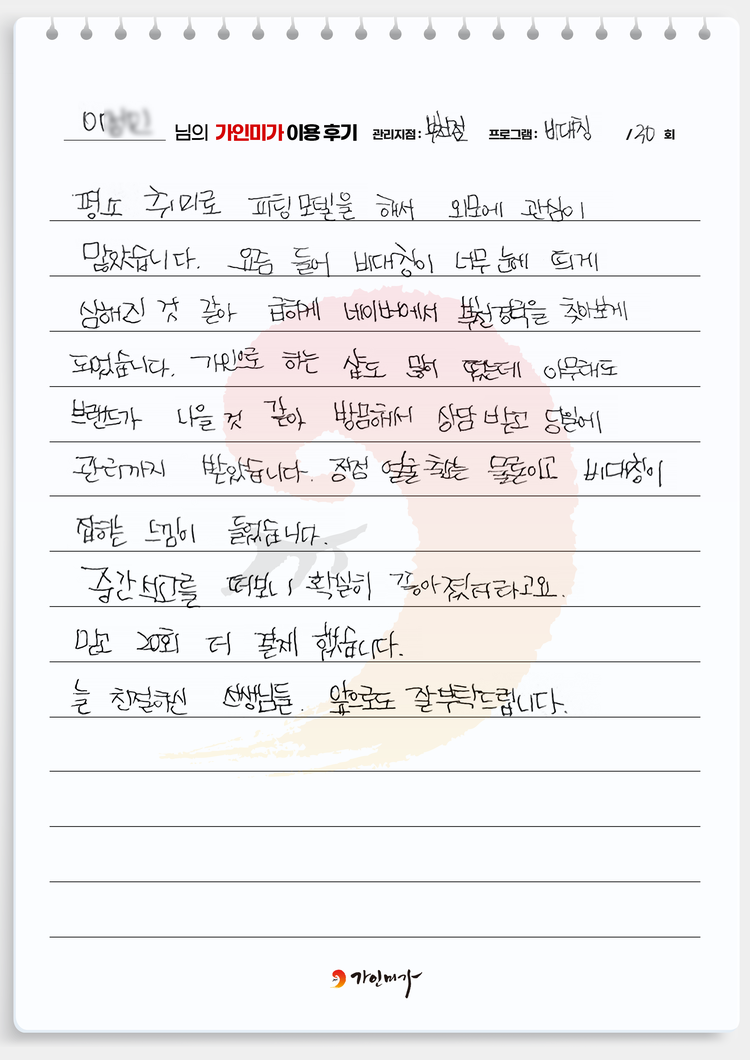 이 님의 가인미가 이용 후기 관리지점 : 부천점 프로그램 : 비대칭 / 30 회
평소 취미로 피팅모델을 해서 외모에 관심이
많았습니다. 요즘 들어 비대칭이 너무 눈에 띄게
심해진 것 같아 급하게 네이버에서 부천경락을 찾아보게
되었습니다. 개인으로 하는 샵도 많이 떴는데 아무래도
브랜드가 나을 것 같아 방문해서 상담 받고 당일에
관리까지 받았습니다. 점점 얼굴 축소는 물론이고 비대칭이
잡히는 느낌이 들었습니다.
중간 석고를 떠보니 확실히 좋아졌더라고요.
믿고 20회 더 결제 했습니다.
늘 친절하신 선생님들. 앞으로도 잘부탁드립니다.
가인미가